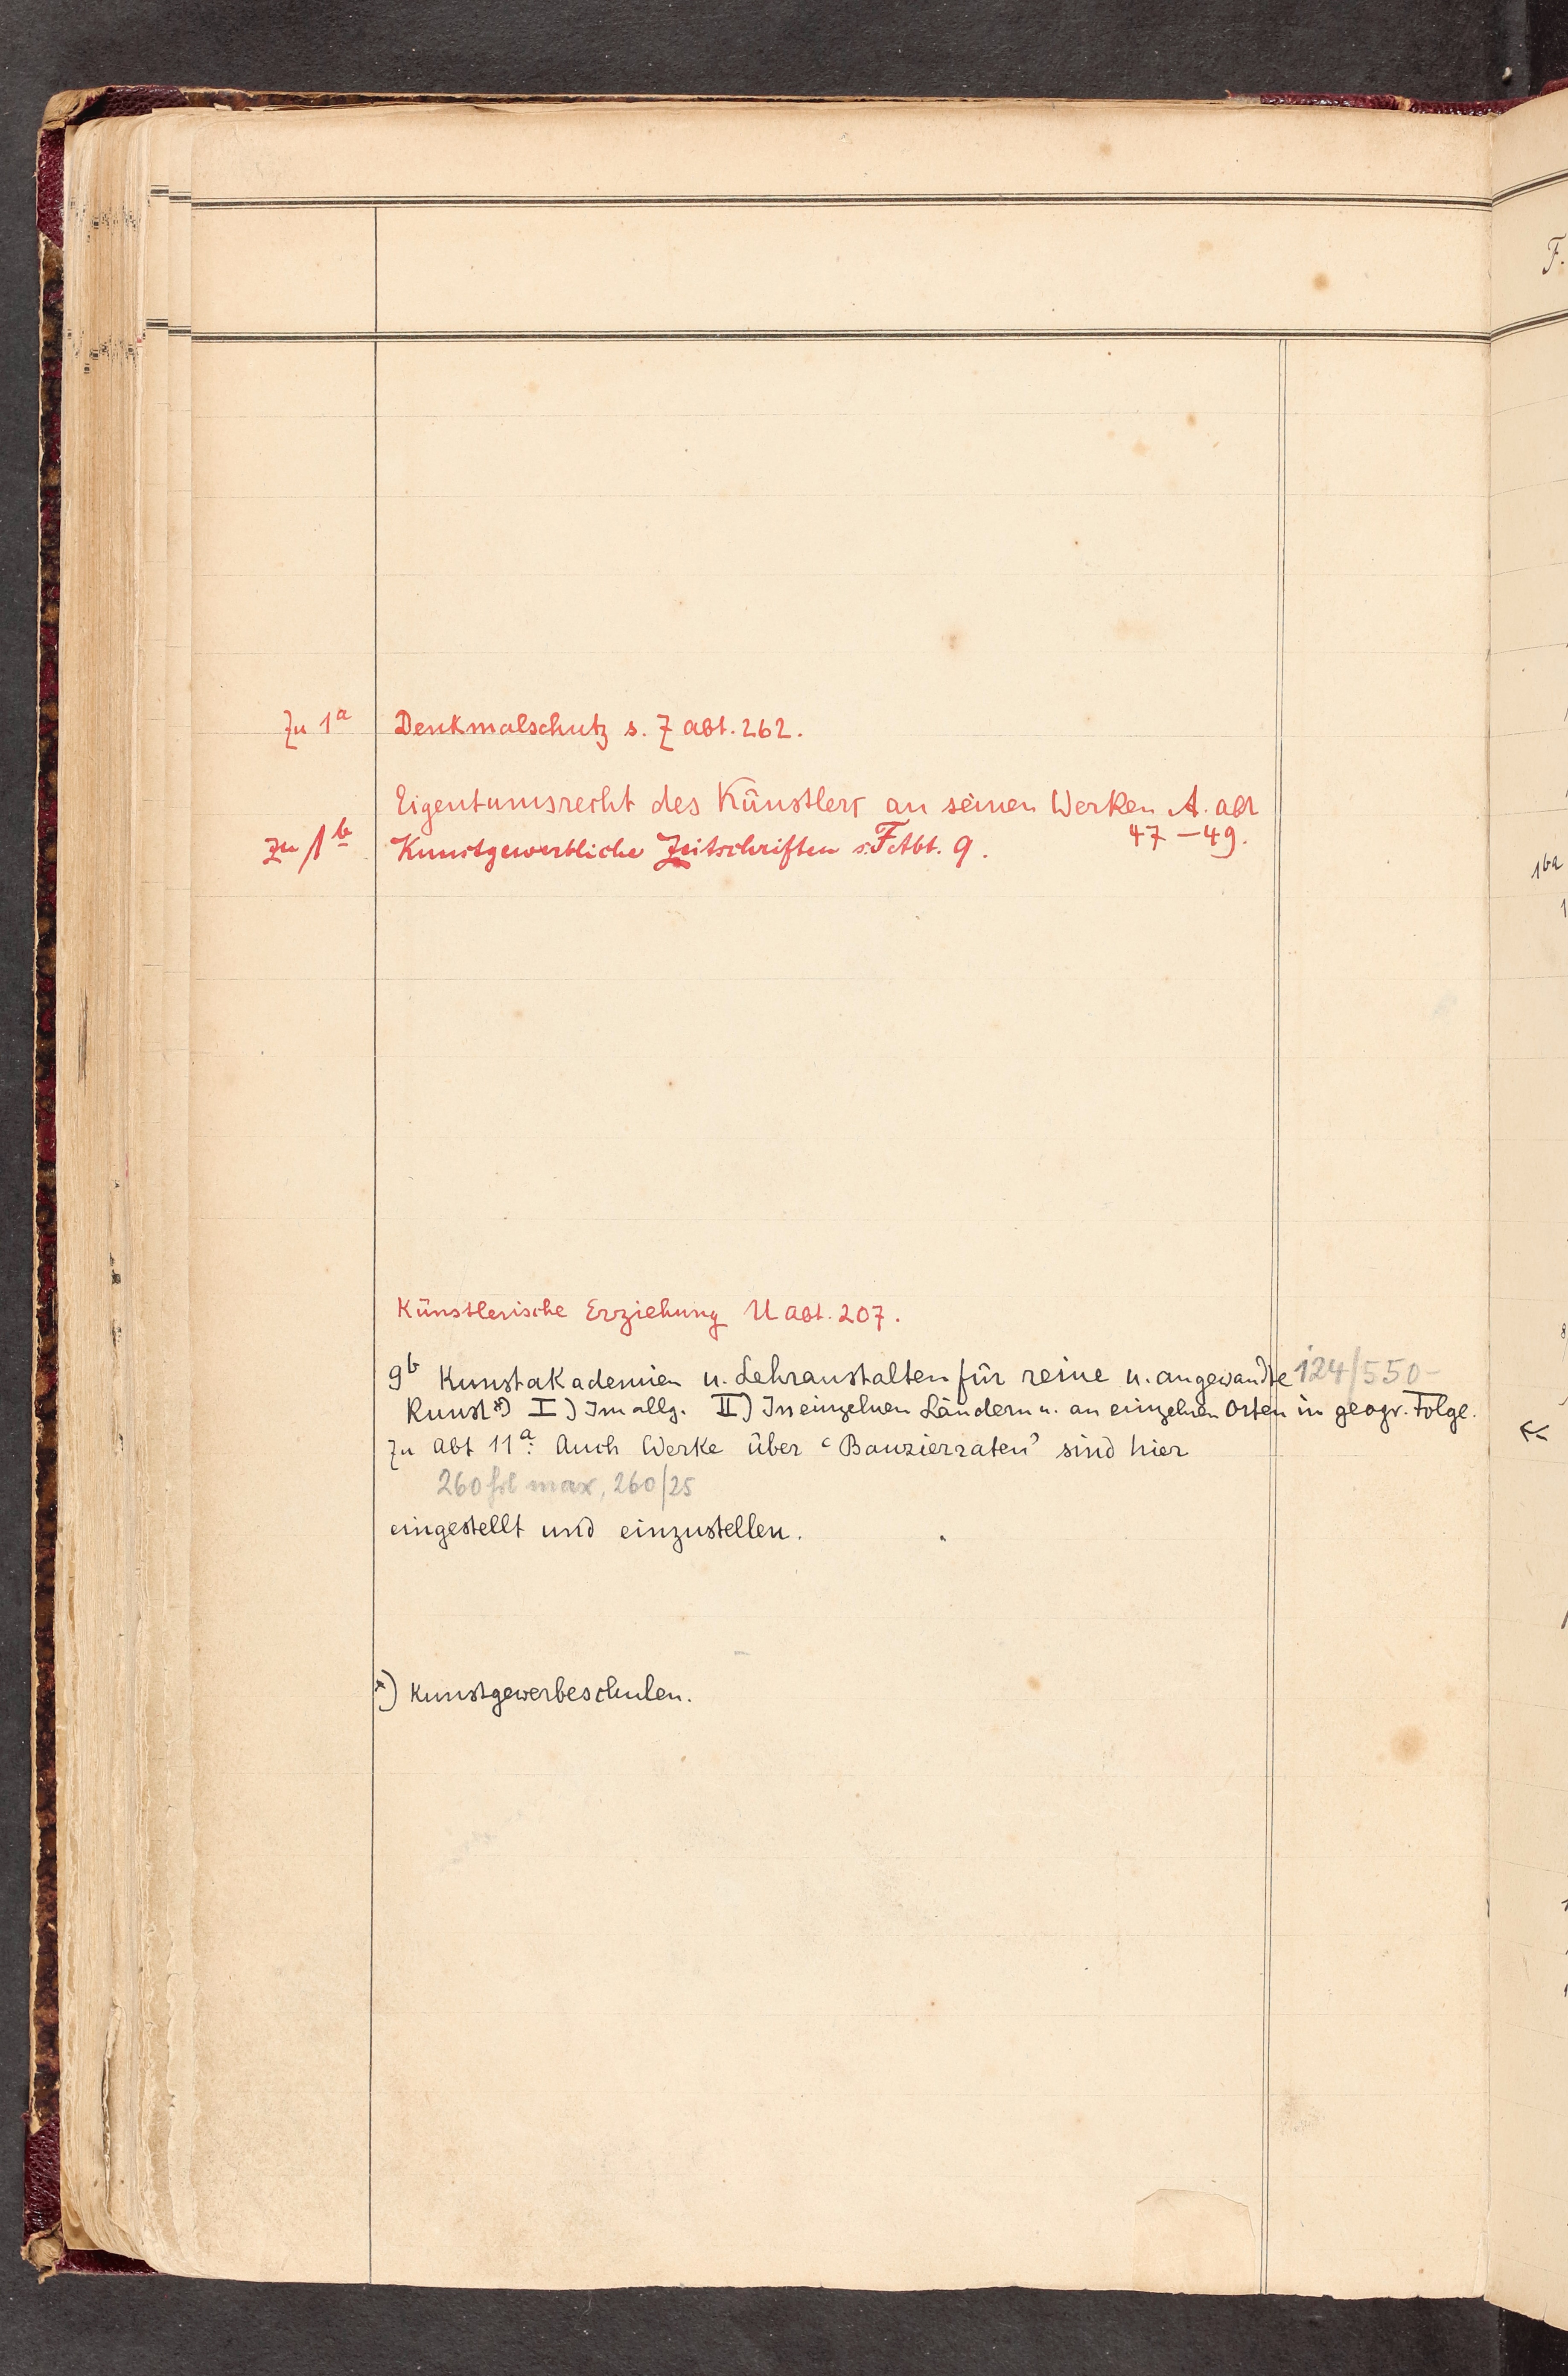 F.
Zu 1a Denkmalschutz s. Z Abt. 262.
Eigentumsrecht des Künstlers an seinen Werken A. Abt
47–49.
Zu 1b Kunstgewerbliche Zeitschriften s. F Abt. 9.
16a
Künstlerische Erziehung U Abt. 207.
9b Kunstakademien u. Lehranstalten für reine u. angewandte 124/550–
Kunst*) I) Im allg. II) In einzelnen Ländern u. an einzelnen Orten in geogr. Folge.
Zu Abt 11a: Auch Werke über ‘Bauzierraten’ sind hier
260 fol max, 260/25
eingestellt und einzustellen.
*) Kunstgewerbeschulen.